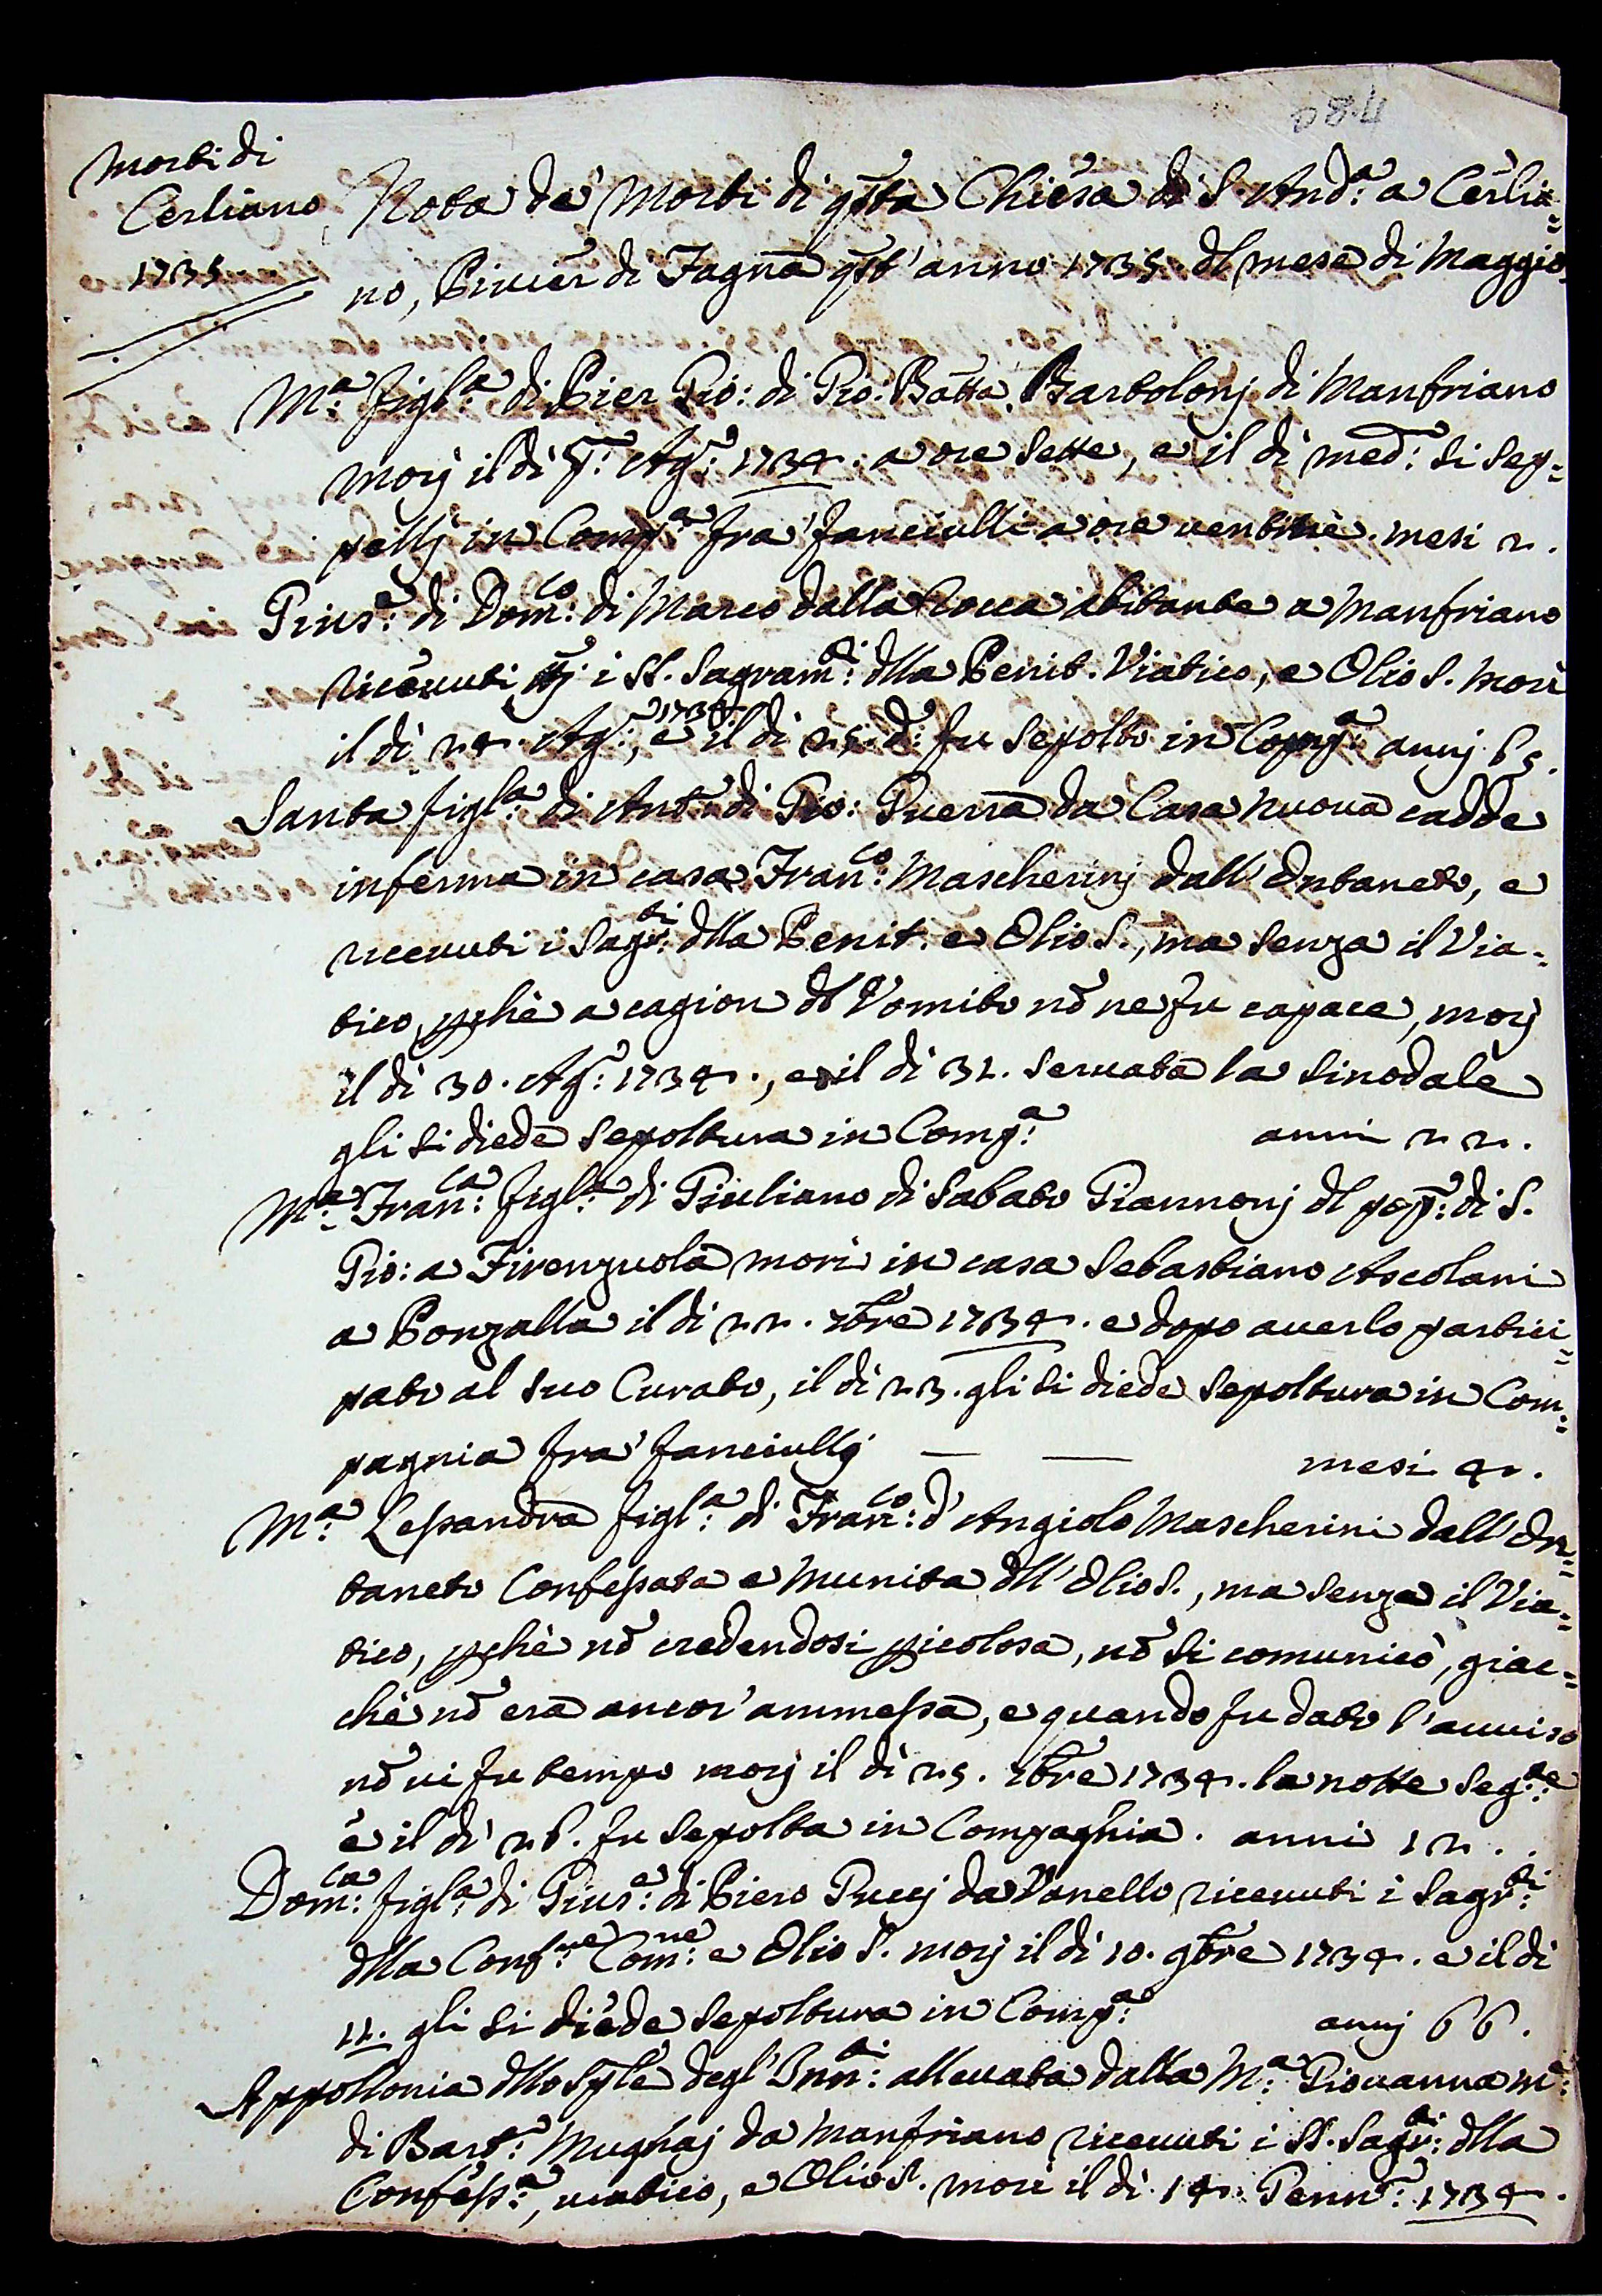 084
Morti di
Cerliano
1735
Nota de' Morti di qsta Chiesa di S. And:ª a Cerlia=
no, Pivier di Fagna qst' anno 1735. dl mese di Maggio
M:ª figl:ª di Pier Gio: di Gio: Batta Bartolonj di Manfriano
morj il dì Agº: 1734: a ore sette, e il dì med:º si sep=
pellj in Comp:ª fra' fanciulli a ore ventitrè. mesi 2.
Gius:e di Dom:co di Marco dalla Rocca abitante a Manfriano
ricevuti i SS. Sagram:ti dlla Penit. Viatico, e Olio S. morì
il dì 24. Agº:, 1734 e il dì 25. dº: fu sepolto in Comp:ª annj 65.
Santa figl:ª di Antº: di Gio: Guerra da Casa nuova cadde
inferma in casa Fran:co Mascherinj dall' Ortaneto, e
ricevuti i Sagr:ti dlla Penit. e Olio S., ma senza il Via=
tico, pchè a cagion dl Vomito nō ne fu capace, morj
il dì 30. Agº: 1734., e il dì 31. servata la sinodale
gli si diede sepoltura in Comp:ª anni 22.
M:ª Fran:ca figl:ª di Giuliano di Sabato Giannonj dl pop:º di S.
Gio: a Firenzuola morì in casa Sebastiano Ascolani
a Ponzalla il dì 22. 7bre 1734. e dopo averlo partici=
pato al suo Curato, il dì 23. gli si diede sepoltura in Com=
pagnia fra' fanciullj — — mesi 4.
M:ª Lessandra figl:ª di Fran:co d' Angiolo Mascherini dall' Or=
taneto Confessata e munita dll' Olio S., ma senza il Via=
tico, pchè nō credendosi picolosa, nō si comunicò, giac=
chè nō era ancor' ammessa, e quando fu dato l'avviso
nō vi fu tempo morj il dì 25. 7bre 1734. la notte seg:te
e il dì 26. fu sepolta in Compagnia. anni 12.
Dom:ca figl:ª di Gius:e di Piero Puccj da Vanello ricevuti i Sagr:ti
dlla Conf:ne Com:ne e Olio S. morj il dì 10. 9bre 1734. e il dì
11. gli si diede sepoltura in Comp:ª annj 66.
Appollonia dllo Sple degl' Inn:ti allevata dalla M:ª Giovanna m:e
di Bart:º Mughaj da Manfriano ricevuti i SS. Sagr:ti dlla
Confess:e, viatico, e Olio S. morì il dì 14. Genn:º 1734.